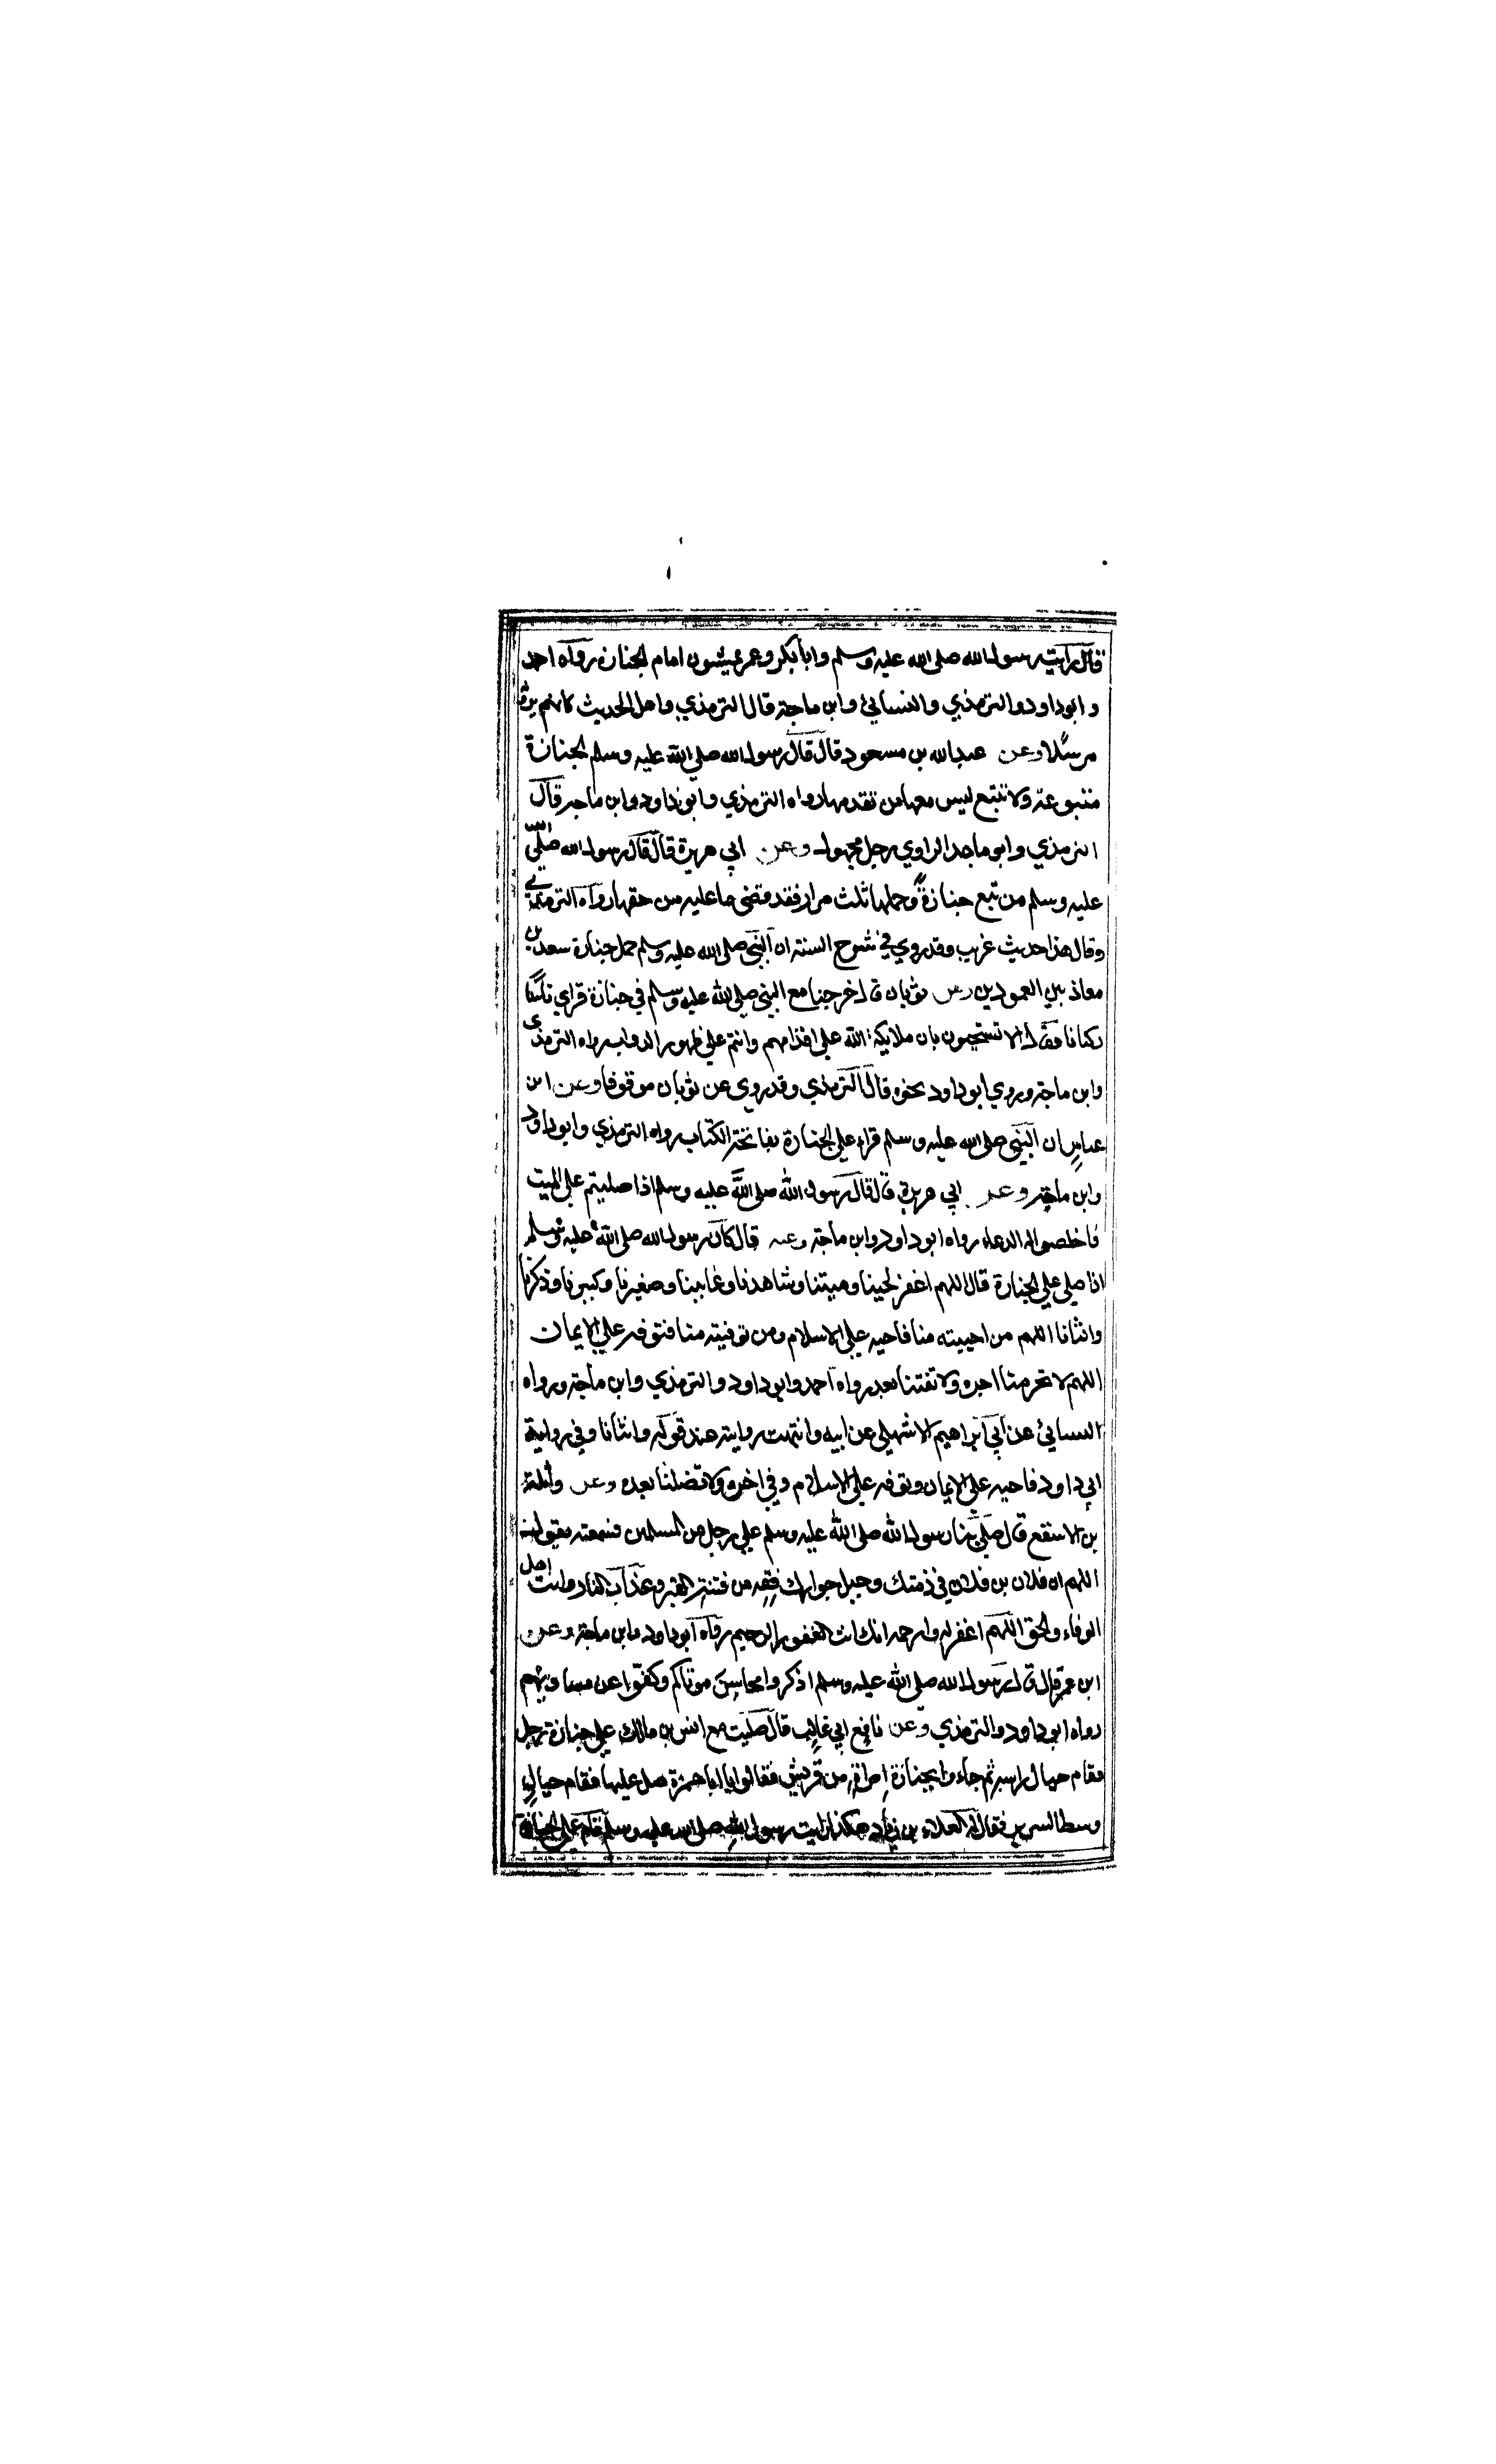 قال رايت رسول الله صلى الله عليه وسلم وابا بكر وعمر يمشون امام الجنازة رواه احمد
وابو داود والترمذي والنسائي وابن ماجة قال الترمذي واهل الحديث كانهم يرونه
مرسلا وعن عبد الله بن مسعود قال قال رسول الله صلى الله عليه وسلم الجنازة
متبوعة ولا تتبع ليس معها من تقدمها رواه الترمذي وابو داود وابن ماجة قال
الترمذي وابو ماجد الراوي رجل مجهول وعن ابي هريرة قال قال رسول الله صلى الله
عليه وسلم من تبع جنازة وحملها ثلث مرار فقد قضى ما عليه من حقها رواه الترمذي
وقال هذا حديث غريب وقد روي في شرح السنة ان النبي صلى الله عليه وسلم حمل جنازة سعد بن
معاذ بين العمودين وعن ثوبان قال خرجنا مع النبي صلى الله عليه وسلم في جنازة فراي ناسا
ركبانا فقال الا تستحيون بان ملايكة الله على اقدامهم وانتم على ظهور الدواب رواه الترمذي
وابن ماجة وروي ابو داود نحوه قال الترمذي وقد روي عن ثوبان موقوفا وعن ابن
عباس ان النبي صلى الله عليه وسلم قراء على الجنازة بفاتحة الكتاب رواه الترمذي وابو داود
وابن ماجة وعن ابي هريرة قال قال رسول الله صلى الله عليه وسلم اذا صليتم على الميت
فاخلصوا له الدعاء رواه ابو داود وابن ماجة وعنه قال كان رسول الله صلى الله عليه وسلم
اذا صلى على الجنازة قال اللهم اغفر لحينا وميتنا وشاهدنا وغايبنا وصغيرنا وكبيرنا وذكرنا
وانثانا اللهم من احييته منا فاحيه على الاسلام ومن توفيته منا فتوفه على الايمان
اللهم لا تحرمنا اجره ولا تفتنا بعده رواه احمد وابو داود والترمذي وابن ماجة ورواه
النسائي عن ابي ابراهيم الاشهلي عن ابيه وانتهت روايته عند قوله وانثانا وفي رواية
ابي داود فاحيه على الايمان وتوفه على الاسلام وفي اخره ولا تضلنا بعده وعن واثلة
بن الاسقع قال صلى بنا رسول الله صلى الله عليه وسلم على رجل من المسلمين فسمعته يقول
اللهم ان فلان بن فلان في ذمتك وحبل جوارك فقه من فتنة القبر وعذاب النار وانت اهل
الوفاء والحق اللهم اغفر له وارحمه انك انت الغفور الرحيم رواه ابو داود وابن ماجة وعن
ابن عمر قال قال رسول الله صلى الله عليه وسلم اذكروا محاسن موتاكم وكفوا عن مساويهم
رواه ابو داود والترمذي وعن نافع ابي غالب قال صليت مع انس بن مالك على جنازة رجل
فقام حيال راسه ثم جاءوا بجنازة امراة من قريش فقالوا يا ابا حمزة صل عليها فقام حيال
وسط السرير فقال له العلاء بن زياد هكذا رايت رسول الله صلى الله عليه وسلم قام على الجنازة